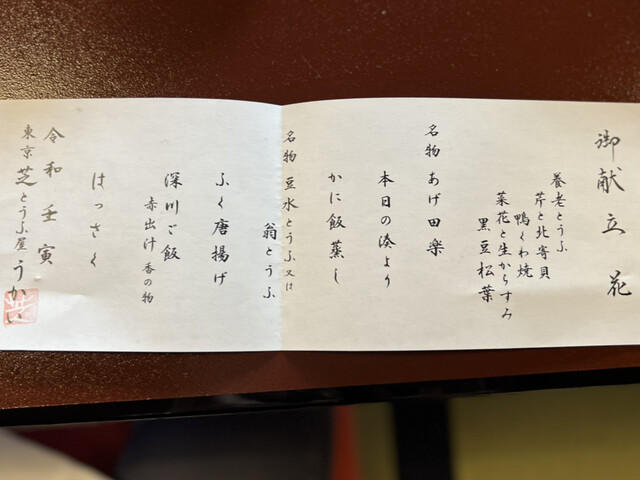 御献立 花
養老とうふ
芹と北寄貝
鴨くわ焼
菜花と生からすみ
黒豆松葉
名物 あげ田楽
本日の湊より
かに飯蒸し
名物 豆水とうふ又は
翁とうふ
ふく唐揚げ
深川ご飯
赤出汁 香の物
はっさく
令和壬寅
東京 芝 とうふ屋うかい